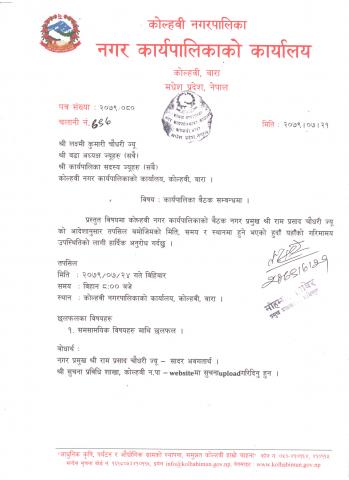 कोल्हवी नगरपालिका
नगर कार्यपालिकाको कार्यालय
कोल्हवी, बारा
मधेश प्रदेश, नेपाल
पत्र संख्या : २०७९.०८०
चलानी नं.
मिति : २०७९/०७/२१
श्री लक्ष्मी कुमारी चौधरी ज्यू
श्री वडा अध्यक्ष ज्यूहरु (सबै)
श्री कार्यपालिका सदस्य ज्यूहरु (सबै)
कोल्हवी नगर कार्यपालिकाको कार्यालय, कोल्हवी, बारा ।
विषय : कार्यपालिका बैठक सम्बन्धमा ।
प्रस्तुत विषयमा कोल्हवी नगर कार्यपालिकाको बैठक नगर प्रमुख श्री राम प्रसाद चौधरी ज्यू
को आदेशानुसार तपसिल बमोजिमको मिति, समय र स्थानमा हुने भएको हुदाँ यहाँको गरिमामय
उपस्थितिको लागी हार्दिक अनुरोध गर्दछु ।
तपसिल
मिति : २०७९/०७/२४ गते बिहिबार
समय : बिहान ८:०० बजे
स्थान : कोल्हवी नगरपालिकाको कार्यालय, कोल्हवी, बारा ।
छलफलका विषयहरु
१. समसामयिक विषयहरु माथि छलफल ।
बोधार्थ :
नगर प्रमुख श्री राम प्रसाद चौधरी ज्यू – सादर अवगतार्थ ।
श्री सुचना प्रविधि शाखा, कोल्हवी न.पा – websiteमा सुचनाuploadगरिदिनु हुन ।
"आधुनिक कृषि, पर्यटन र औद्योगिक ग्रामको स्थापना, समुन्नत कोल्हवी हाम्रो चाहना"
info@kolhabimun.gov.np, वेबसाइट : www.kolhabimun.gov.np